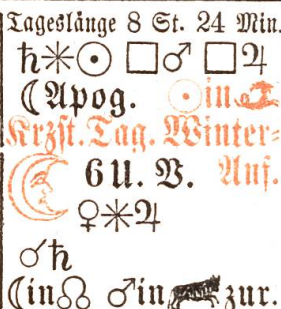 Tageslänge 8 St. 24 Min.
♄⚹☉ □♂ □♃
☾Apog. ☉in♑
Krzst. Tag. Winter-
☾ 6 U. V. Anf.
♀⚹♃
☌♄
☾in☊ ♂in♉ zur.